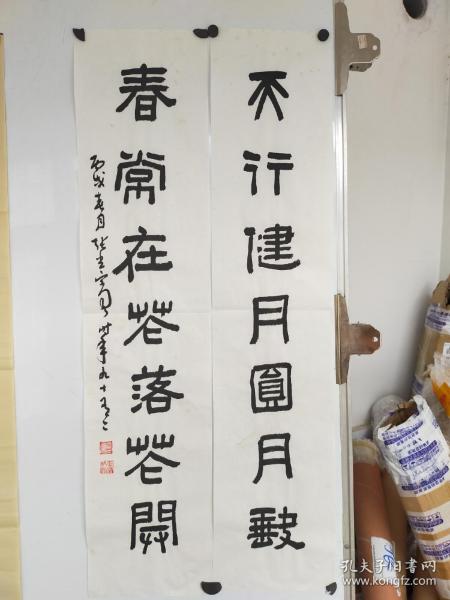 天行健月圓月缺
春常在花落花開
丙戌春月
時年九十有二
孔夫子旧书网
www.kongfz.com